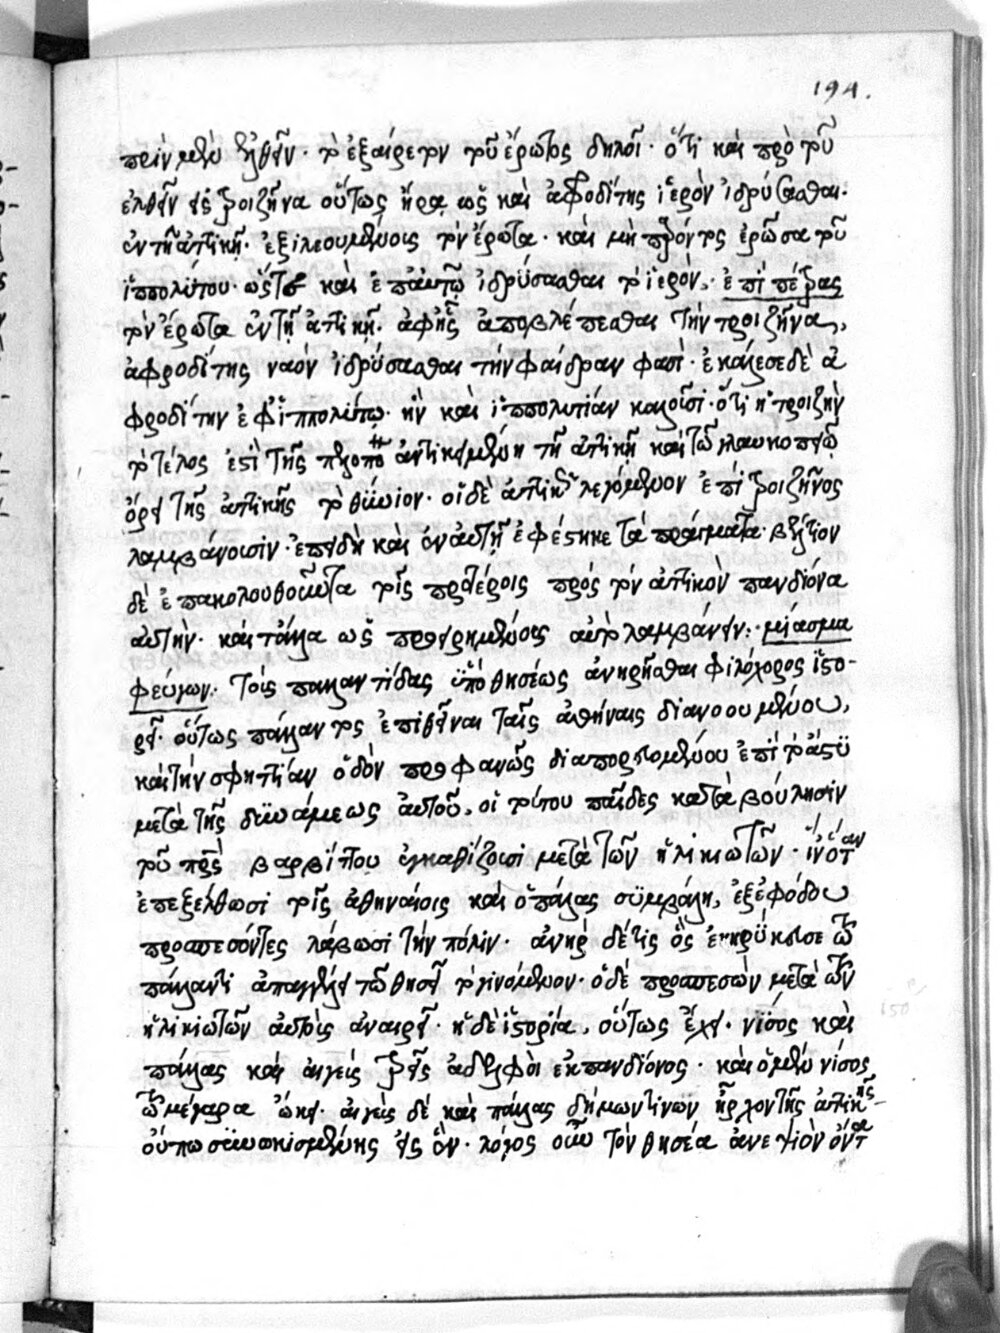 194.
πρὶν μὲν ἐλθεῖν· τὸ ἐξαίρετον τοῦ ἔρωτος δηλοῖ· ὅτι καὶ πρὸ τοῦ
ἐλθεῖν εἰς τροιζῆνα οὕτως ἤρα ὡς καὶ ἀφροδίτης ἱερὸν ἱδρύσασθαι·
ἐν τῇ ἀττικῇ· ἐξιλεουμένοις τὸν ἔρωτα· καὶ μὴ παρόντος ἐρῶσα τοῦ
ἱππολύτου· ὥστε καὶ ἐπ' αὐτῷ ἱδρύσασθαι τὸ ἱερόν· ἐπὶ πέτρας
τὸν ἔρωτα ἐν τῇ ἀττικῇ· ἀφ' ἧς ἀποβλέπεσθαι τὴν τροιζῆνα,
ἀφροδίτης ναὸν ἱδρύσασθαι τὴν φαίδραν φασί· ἐκάλεσε δὲ ἀ
φροδίτην ἐφ' ἱππολύτῳ· ἣν καὶ ἱππολυτίαν καλοῦσι· ὅτι ἡ τροιζὴν
τὸ τέλος ἐστὶ τῆς ἀντικειμένη τῇ ἀττικῇ καὶ τῷ γλαυκοπίῳ
ὄρει τῆς ἀττικῆς τὸ οἱ δὲ λεγόμενον ἐπὶ τροιζῆνος
λαμβάνουσιν· ἐπειδὴ καὶ ἐν αὐτῇ ἐφέστηκε τὰ πράγματα· βέλτιον
δὲ ἐπακολουθοῦντα τοῖς προτέροις πρὸς τὸν ἀττικὸν πανδίονα
αὐτὴν· καὶ τἄλλα ὡς προειρημένοις αὐτὸ λαμβάνειν· μίασμα
φεύγων· τοὺς παλλαντίδας ὑπὸ θησέως ἀνῃρῆσθαι φιλόχορος ἱστο-
ρεῖ· οὕτως πάλλαντος ἐπιβῆναι ταῖς ἀθήναις διανοουμένου,
καὶ τὴν σφηττίαν ὁδὸν προφανῶς διαπορευομένου ἐπὶ τὸ ἄστυ
μετὰ τῆς δυνάμεως αὐτοῦ, οἱ τούτου παῖδες κατὰ βούλησιν
τοῦ πρς βαρβίττου ἐγκαθίζουσι μετὰ τῶν ἡλικιωτῶν· ἵν' ὅταν
ἐπεξέλθωσι τοῖς ἀθηναίοις καὶ ὁ πάλλας συμβάλῃ, ἐξ ἐφόδου
προσπεσόντες λάβωσι τὴν πόλιν· ἀνὴρ δέ τις ὃς ἐκηρύκευσε τῷ
πάλλαντι ἀπαγγέλλει τῷ θησεῖ τὸ γινόμενον· ὁ δὲ προσπεσὼν μετὰ τῶν
ἡλικιωτῶν αὐτοὺς ἀναιρεῖ· ἡ δὲ ἱστορία, οὕτως ἔχει· νίσος καὶ
πάλλας καὶ αἰγεὺς τρεῖς ἀδελφοὶ ἐκ πανδίονος· καὶ ὁ μὲν νίσος
τῶν μέγαρα ᾤκει· αἰγεὺς δὲ καὶ πάλλας δήμων τινῶν ἦρχον τῆς ἀττικῆς
οὔπω συνῳκισμένης εἰς ἕν· λόγος οὖν τὸν θησέα ἀνεψιὸν ὄντα